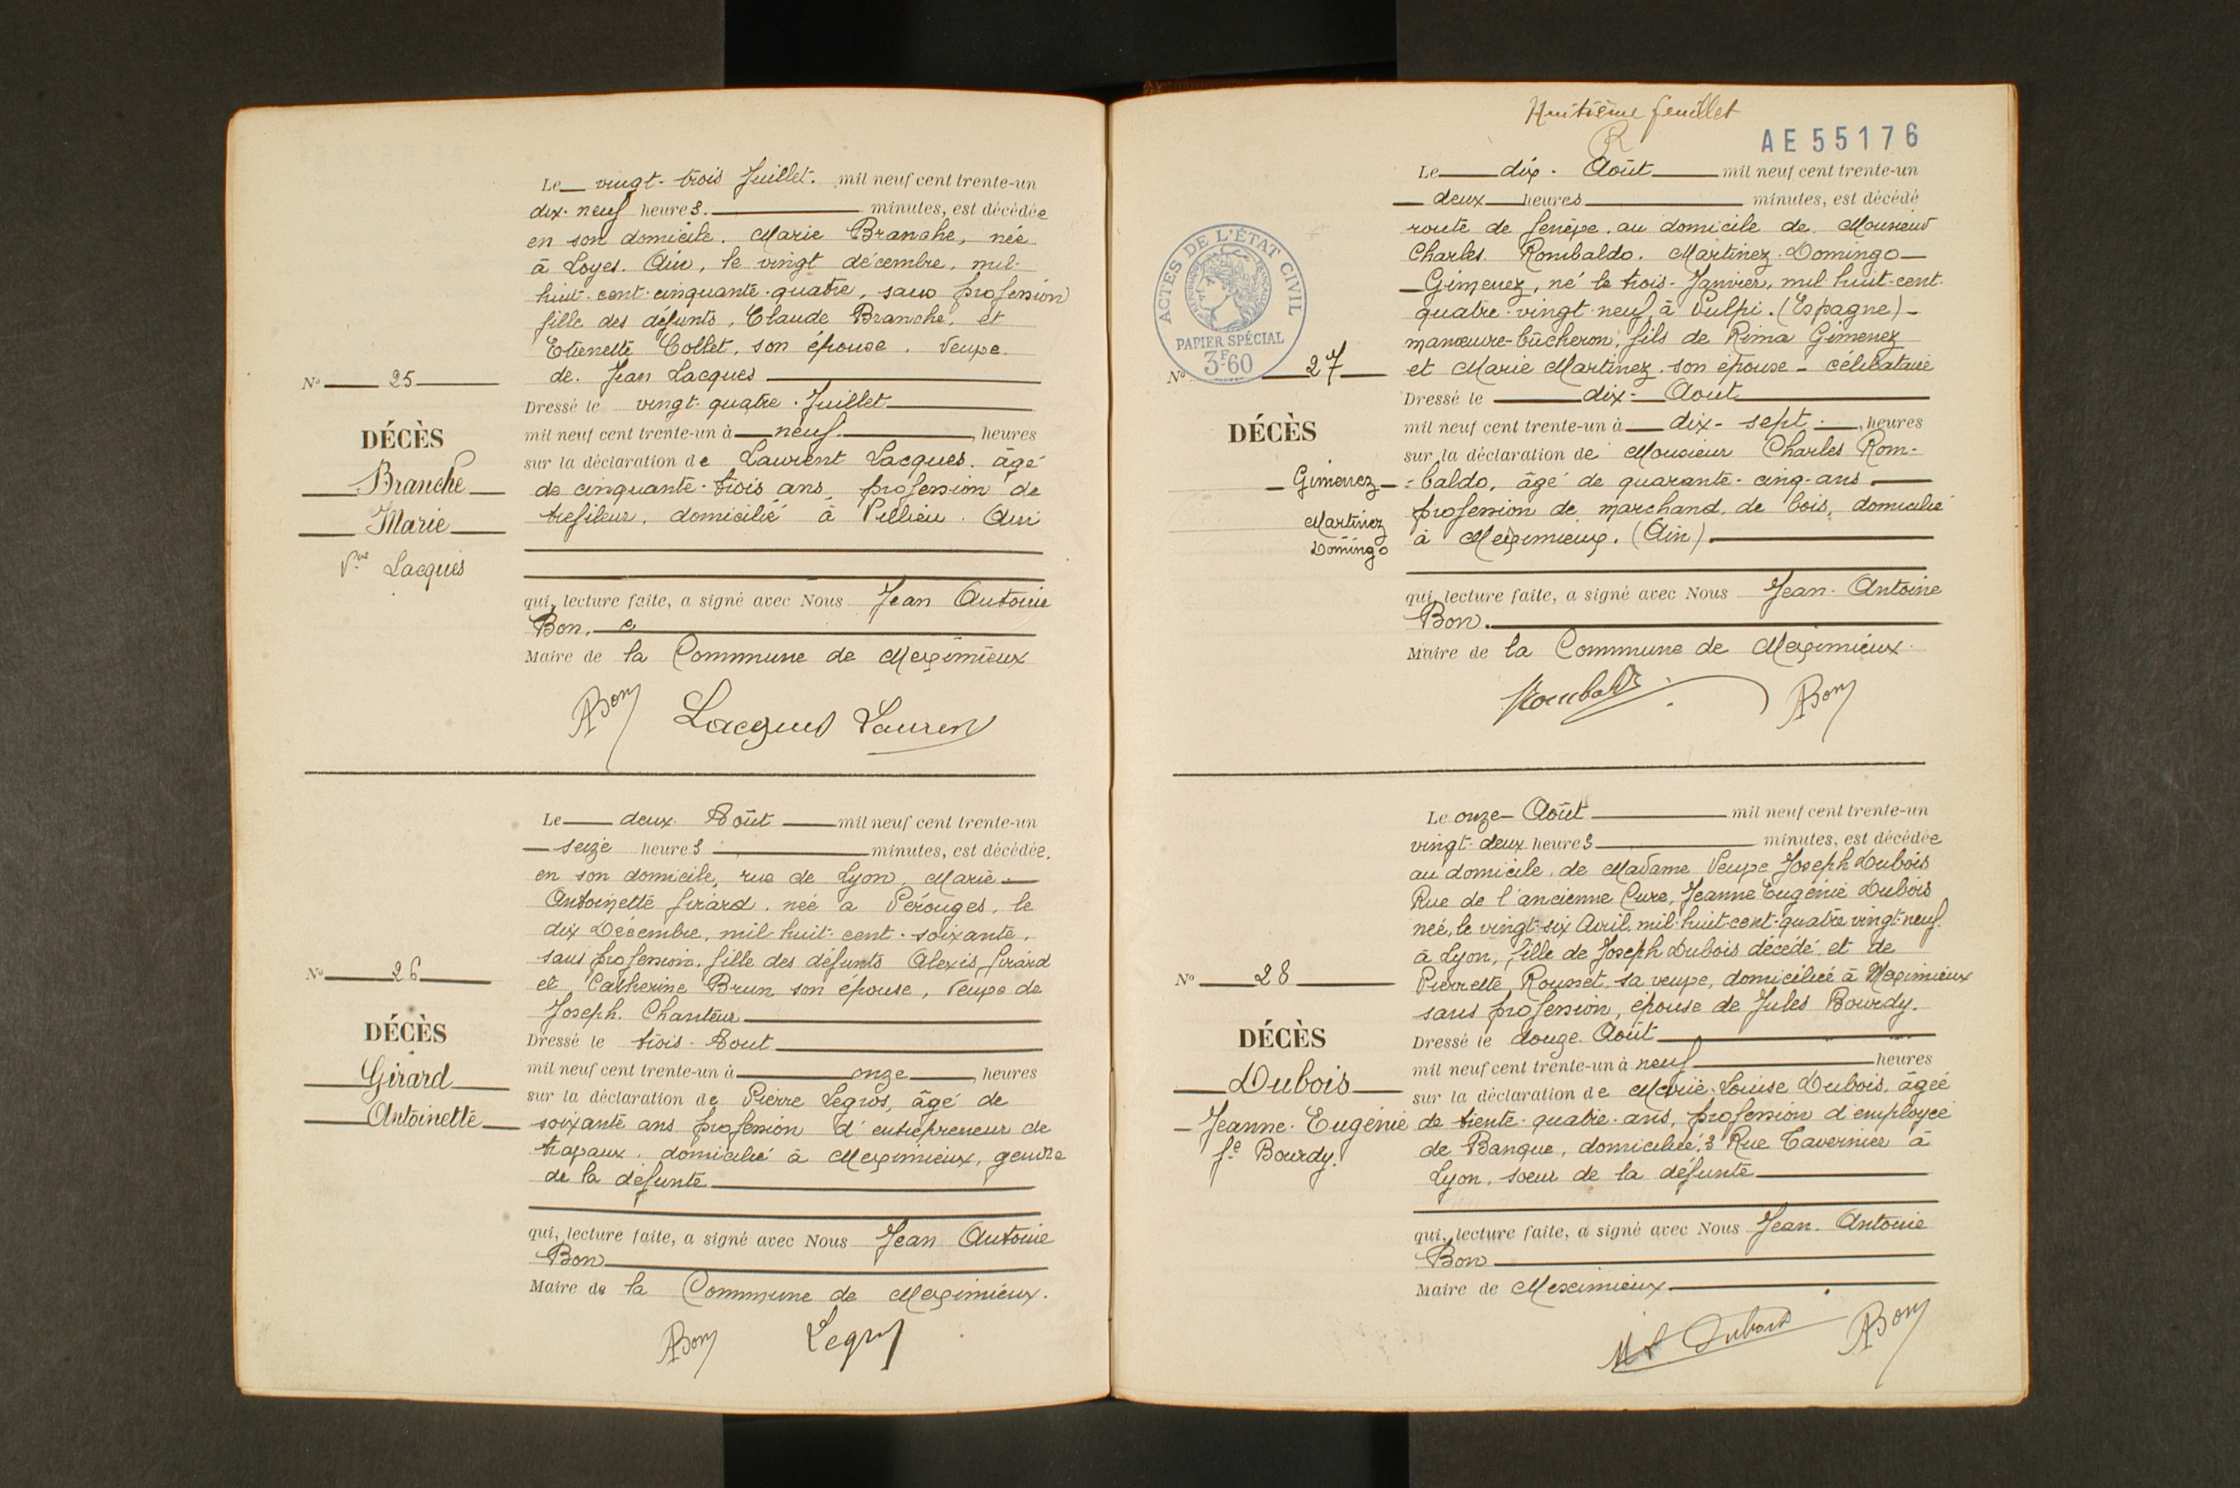 Le vingt-trois Juillet. mil neuf cent trente-un
dix-neuf heures. minutes, est décédée
en son domicile. Marie Branche, née
à Loyes. Ain, le vingt décembre, mil-
huit-cent-cinquante-quatre, sans profession
fille des défunts, Claude Branche, et
Etienette Collet, son épouse. Veuve
de. Jean Lacques
N° 25
Dressé le vingt-quatre. Juillet
DÉCÈS
mil neuf cent trente-un à neuf. , heures
sur la déclaration de Laurent Lacques. âgé
Branche
de cinquante-trois ans, profession de
Marie
trefileur, domicilié à Villieu. Ain
Vve Lacques
qui, lecture faite, a signé avec Nous Jean Antoine
Bon.
Maire de la Commune de Meximieux
ABon Lacques Lauren
Le deux Août mil neuf cent trente-un
seize heures minutes, est décédée.
en son domicile, rue de Lyon, Marie
Antoinette Girard, née a Pérouges, le
dix Décembre, mil-huit-cent-soixante,
sans profession. fille des défunts Alexis Girard
N° 26
et, Catherine Brun son épouse, Veuve de
Joseph. Chanteur
DÉCÈS
Dressé le trois-Aout
mil neuf cent trente-un à onze , heures
Girard
sur la déclaration de Pierre Legros, âgé de
Antoinette
soixante ans profession d'entrepreneur de
travaux. domicilié à Meximieux, gendre
de la défunte
qui, lecture faite, a signé avec Nous Jean Antoine
Bon
Maire de la Commune de Meximieux.
ABon Legros
Huitième feuillet
R
AE55176
Le dix. Août mil neuf cent trente-un
deux heures minutes, est décédé
route de Genève, au domicile de Monsieur
Charles. Rombaldo. Martinez. Domingo
Gimenez, né le trois-Janvier, mil huit-cent-
quatre-vingt-neuf, à Pulpi. (Espagne)
manœuvre-bûcheron, fils de Rima Gimenez
et Marie Martinez son épouse - célibataire
ACTES DE L'ÉTAT CIVIL
RÉPUBLIQUE FRANÇAISE
PAPIER SPÉCIAL
3F60
N° 27
Dressé le dix-Aout
DÉCÈS
mil neuf cent trente-un à dix-sept. , heures
sur la déclaration de Monsieur Charles Rom-
Gimenez
=baldo, âgé de quarante-cinq-ans
Martinez
profession de marchand de bois, domicilié
Domingo
à Meximieux. (Ain)
qui, lecture faite, a signé avec Nous Jean-Antoine
Bon.
Maire de la Commune de Meximieux.
Rombaldo ABon
Le onze-Août mil neuf cent trente-un
vingt-deux heures minutes, est décédée
au domicile de Madame Veuve Joseph Dubois
Rue de l'ancienne Cure, Jeanne Eugénie Dubois
née, le vingt-six Avril mil-huit-cent-quatre vingt-neuf.
à Lyon, fille de Joseph Dubois décédé et de
N° 28
Pierrette Rousset sa veuve, domiciliée à Meximieux
sans profession, épouse de Jules Bourdy.
DÉCÈS
Dressé le douze Août
mil neuf cent trente-un à neuf heures
Dubois
sur la déclaration de Marie-Louise Dubois, âgée
Jeanne-Eugénie
de trente-quatre-ans, profession d'employée
fe Bourdy.
de Banque, domiciliée, 3 Rue Tavernier à
Lyon, sœur de la défunte
qui, lecture faite, a signé avec Nous Jean. Antoine
Bon
Maire de Meximieux
M L Dubois ABon